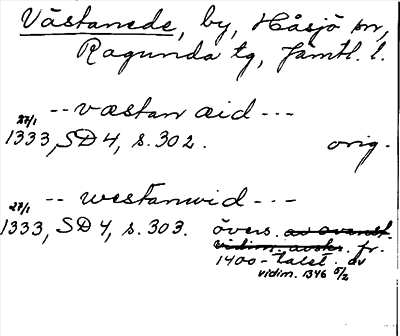 Västanede, by, Håsjö sn,
Ragunda tg, Jämtl. l.
-- væstan aid ---
27/1
1333, SD 4, s. 302. orig.
-- westanwid ---
27/1
1333, SD 4, s. 303. övers. av ovanst.
vidim. avskr. fr.
1400-talet. av
vidim. 1346 5/2